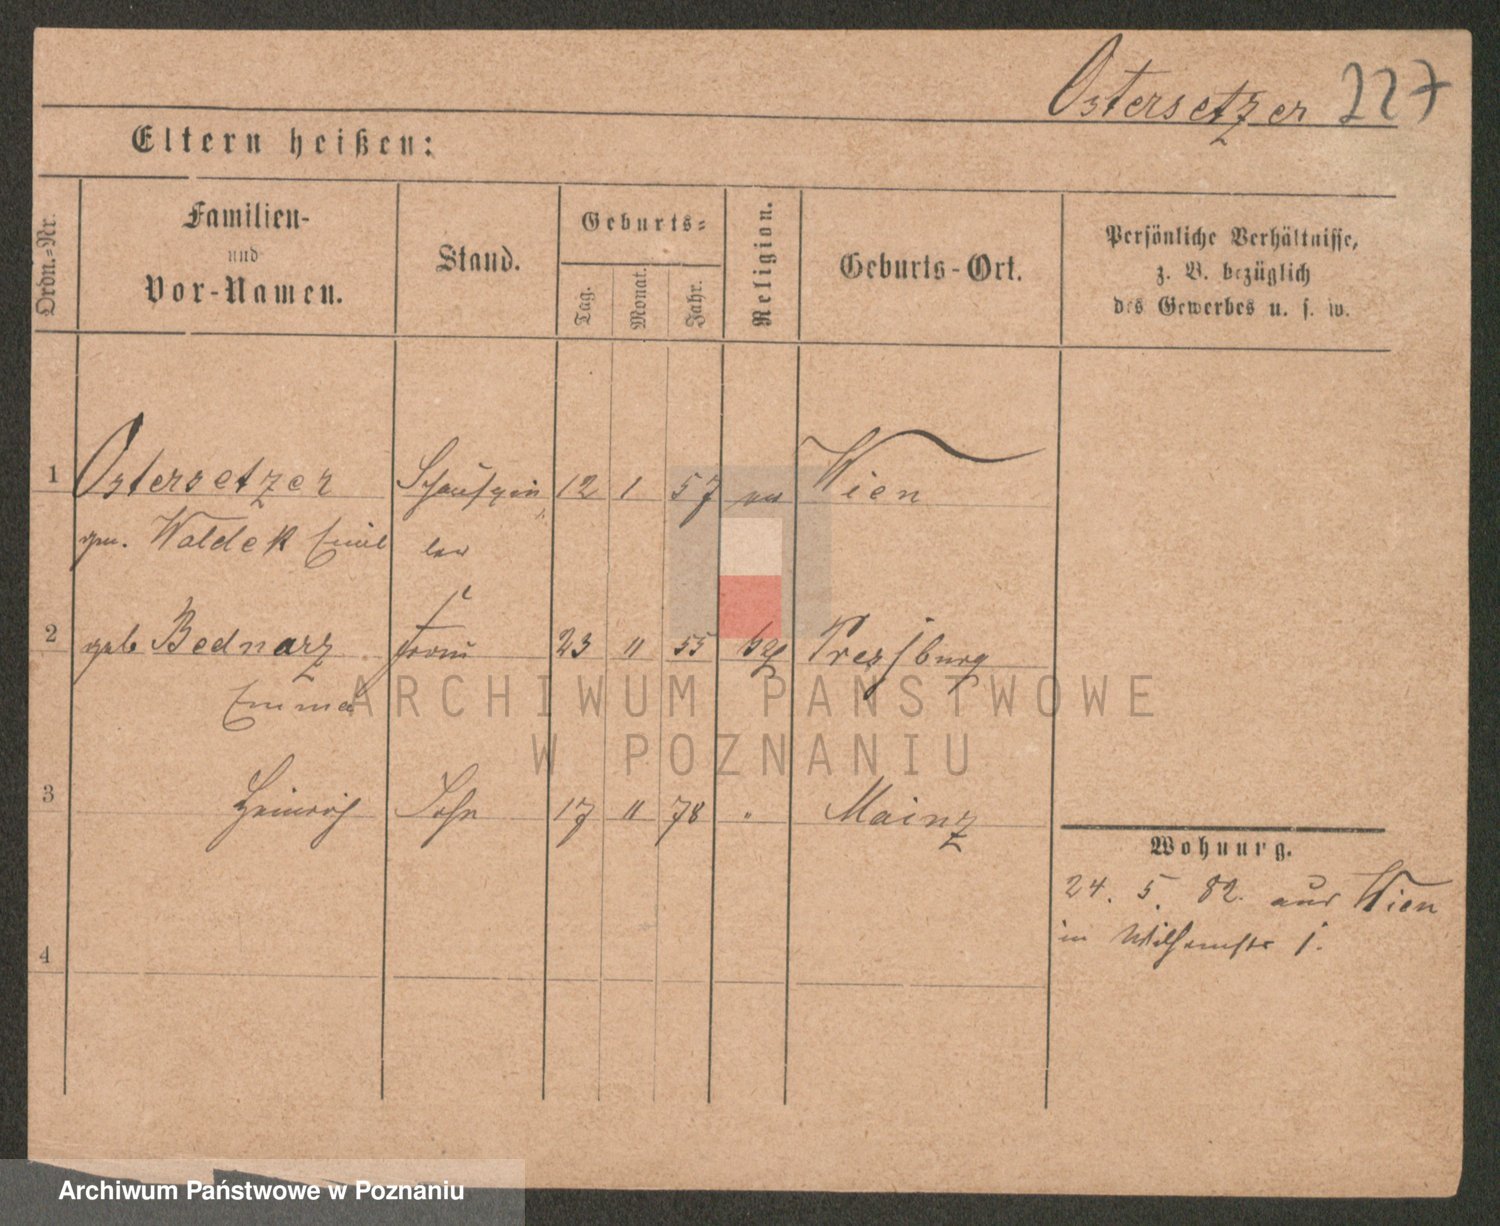 Ostersetzer 227
Eltern heißen:
Ordn.-Nr.
Familien-
und
Vor-Namen.
Stand.
Geburts-
Tag.
Monat.
Jahr.
Religion.
Geburts-Ort.
Persönliche Verhältnisse,
z. B. bezüglich
des Gewerbes u. s. w.
1 Ostersetzer Schauspie 12 1 57 Wien
gen. Waldek Emil ler
2 geb Bednarz Frau 23 " 55 Pressburg
Emma
3 Heinrich Sohn 17 " 78 " Mainz
4
Wohnung.
24. 5. 82. aus Wien
in Wilhemstr 1.
ARCHIWUM PAŃSTWOWE
W POZNANIU
Archiwum Państwowe w Poznaniu